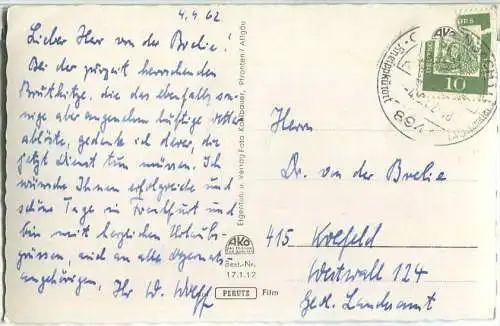 4.4.62
Lieber Herr von der Brelie!
Bei der zurzeit herrschenden
Bruthitze, die das ebenfalls son-
nige aber angenehm luftige Wetter
ablöste, gedenke ich derer, die
jetzt Dienst tun müssen. Ich
wünsche Ihnen erfolgreiche und
schöne Tage in Frankfurt und
bin mit herzlichen Urlaubs-
grüssen, auch an alle
angehörigen, Ihr W. Wolff
Eigentum u. Verlag Foto Kohlbauer, Pfronten / Allgäu
AKO
Best.-Nr.
17.1.12
PERUTZ Film
DEUTSCHE
10
Kneippkurort
Herrn
Dr. von der Brelie
415 Krefeld
Westwall 124
Geol. Landesamt